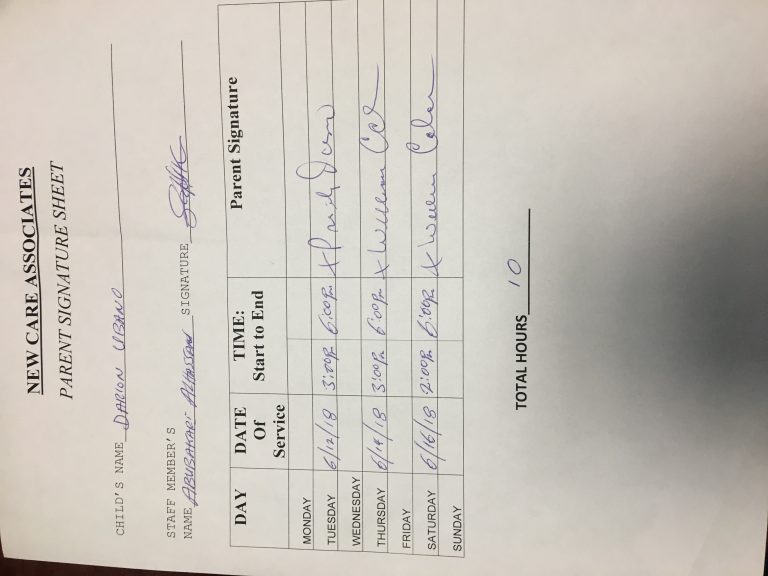 NEW CARE ASSOCIATES
PARENT SIGNATURE SHEET
CHILD'S NAME DARION URBANO
STAFF MEMBER'S
NAME ABUBAKARI ALHASSAN SIGNATURE
DAY DATE Of Service TIME: Start to End Parent Signature
MONDAY
TUESDAY 6/12/18 3:00p 6:00p x
WEDNESDAY
THURSDAY 6/14/18 3:00p 6:00p x William
FRIDAY
SATURDAY 6/16/18 2:00p 6:00p x
SUNDAY
TOTAL HOURS 10